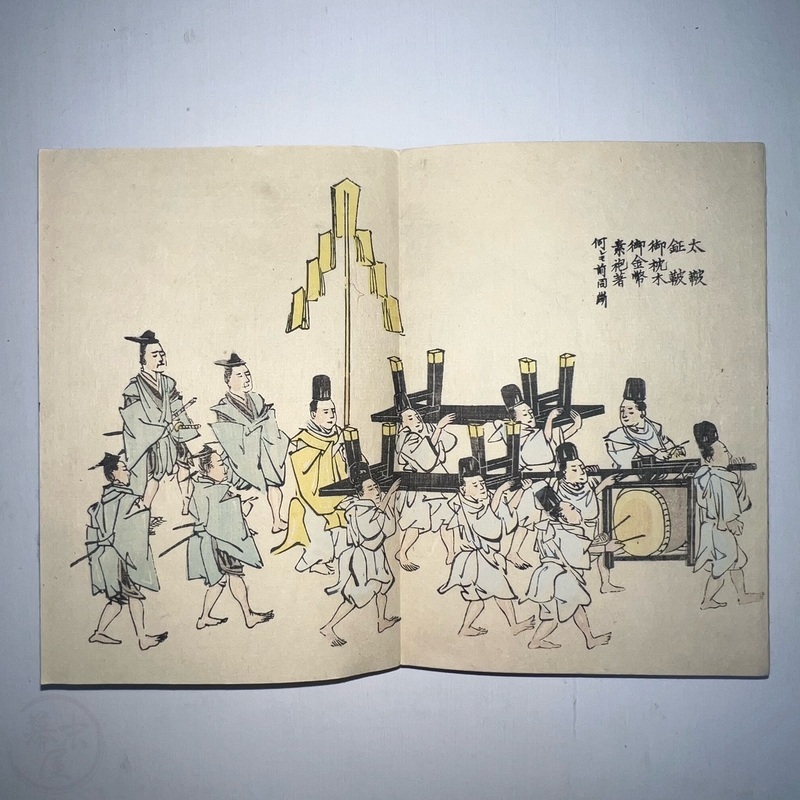 太鞁
鉦鞁
御枕木
御金幣
素袍著
何レモ前同断